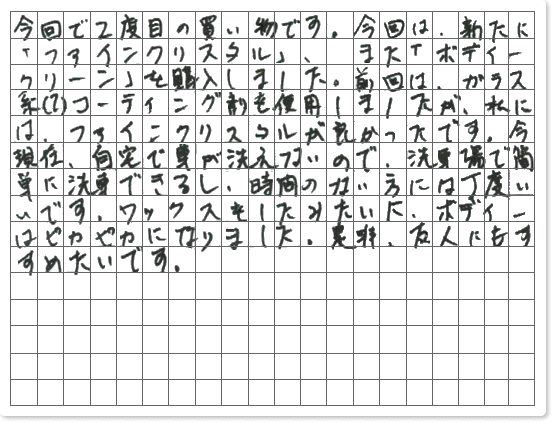 今回で2度目の買い物です。今回は、新たに
「ファインクリスタル」、また「ボディー
クリーン」を購入しました。前回は、ガラス
系(?)コーティング剤を使用しましたが、私に
は、ファインクリスタルが良かったです。今
現在、自宅で車が洗えないので、洗車場で簡
単に洗車できるし、時間のない方には丁度い
いです。ワックスをしたみたいに、ボディー
はピカピカになりました。是非、友人にもす
すめたいです。